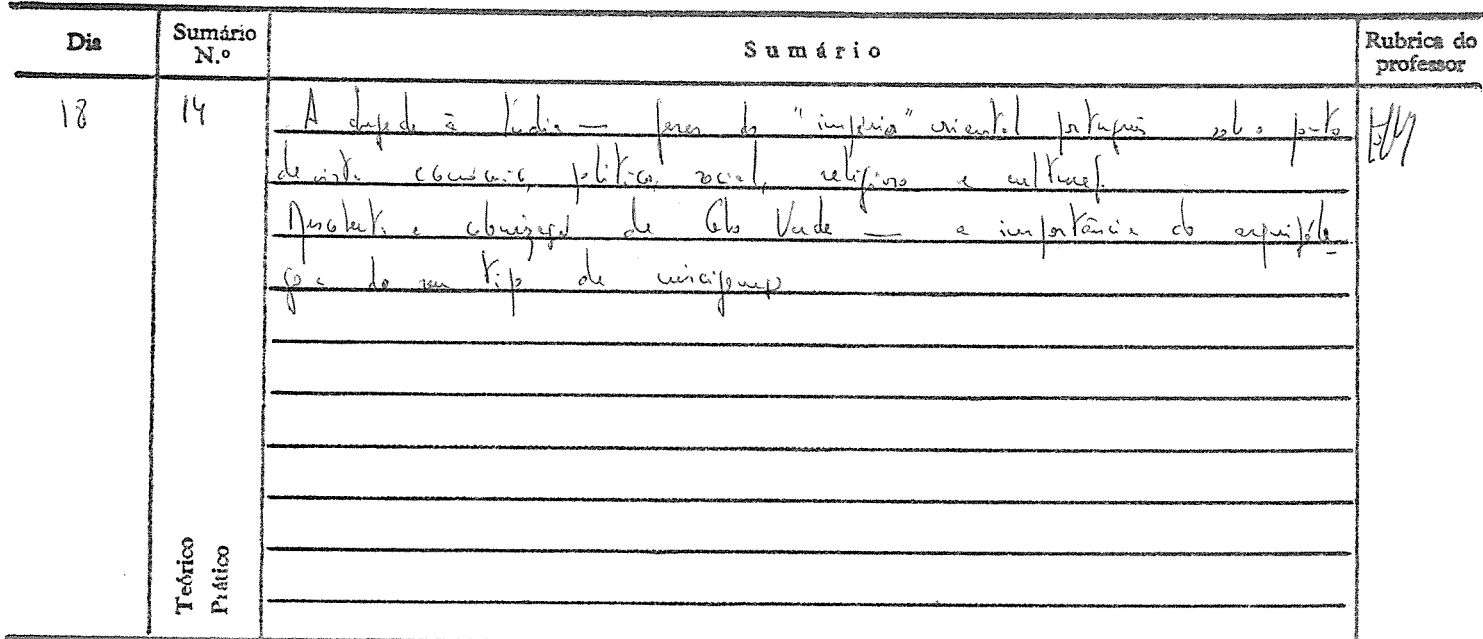 Dia
Sumário N.º
Sumário
Rubrica do professor
18
14
A chegada à Índia — fases do "império" oriental português sob o ponto
de vista económico, político, social, religioso e cultural.
Descoberta e colonização de Cabo Verde — a importância do arquipéla-
go e do seu tipo de miscigenação
Teórico
Prático